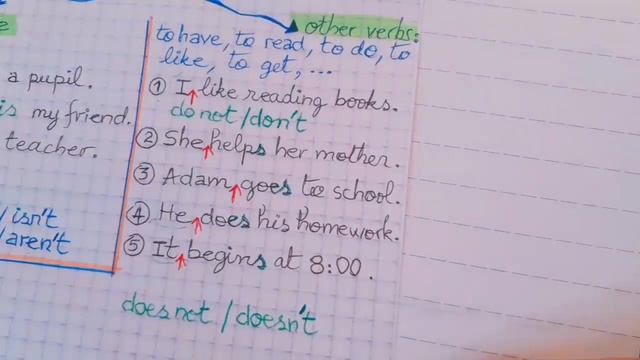 e
other verbs:
to have, to read, to do, to
like, to get, ...
a pupil.
① I like reading books.
do not / don't
is my friend.
② She helps her mother.
teacher.
③ Adam goes to school.
④ He does his homework.
/ isn't
/ aren't
⑤ It begins at 8:00.
does not / doesn't